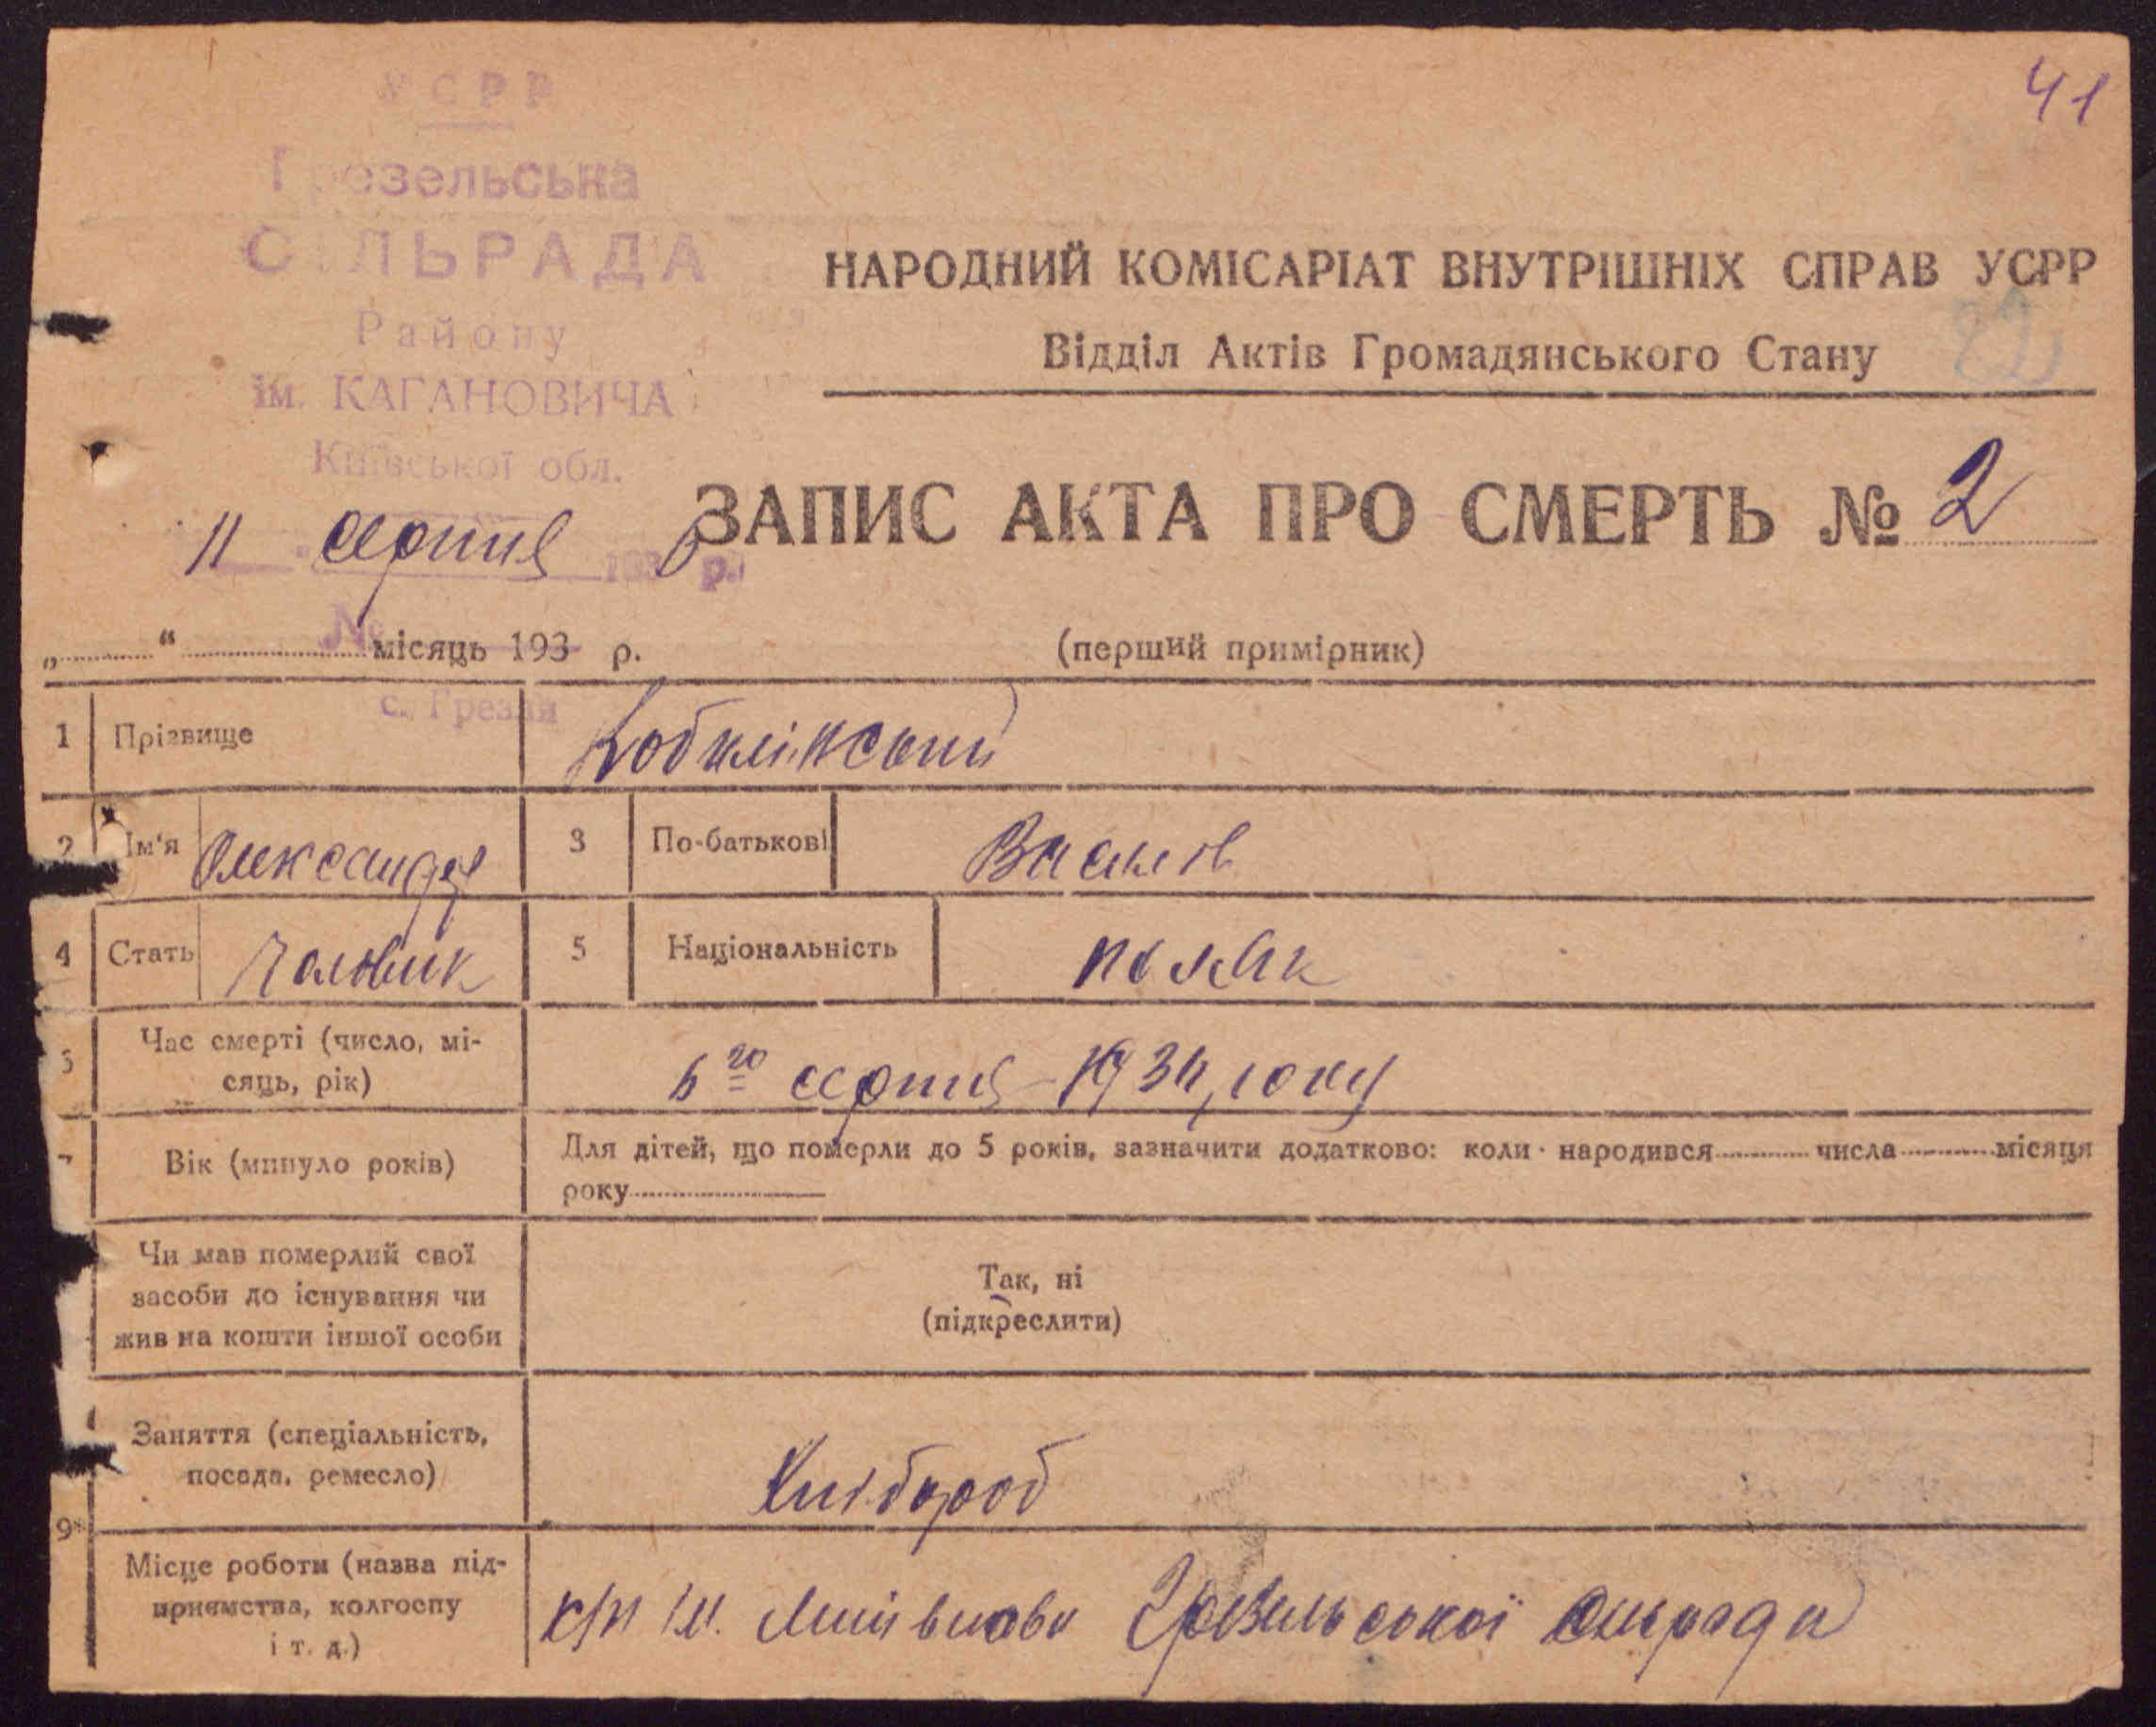 41
УСРР
Грезельська
СІЛЬРАДА
Району
ім. КАГАНОВИЧА
Київської обл.
НАРОДНИЙ КОМІСАРІАТ ВНУТРІШНІХ СПРАВ УСРР
Відділ Актів Громадянського Стану
ЗАПИС АКТА ПРО СМЕРТЬ № 2
11 серпня 193 р.
№
„ “ місяць 193 р.
(перший примірник)
с. Грезля
1 Прізвище Кобилінський
2 Ім'я Олександр 3 По-батькові Васильов
4 Стать Чоловик 5 Національність поляк
Час смерті (число, мі-
сяць, рік)
6го серпня 1934 року
Вік (минуло років)
Для дітей, що померли до 5 років, зазначити додатково: коли народився числа місяця
року
Чи мав померлий свої
засоби до існування чи
жив на кошти іншої особи
Так, ні
(підкреслити)
Заняття (спеціальність,
посада, ремесло)
Хлібороб
9
Місце роботи (назва під-
приємства, колгоспу
і т. д.)
ім. Грезельської сильради